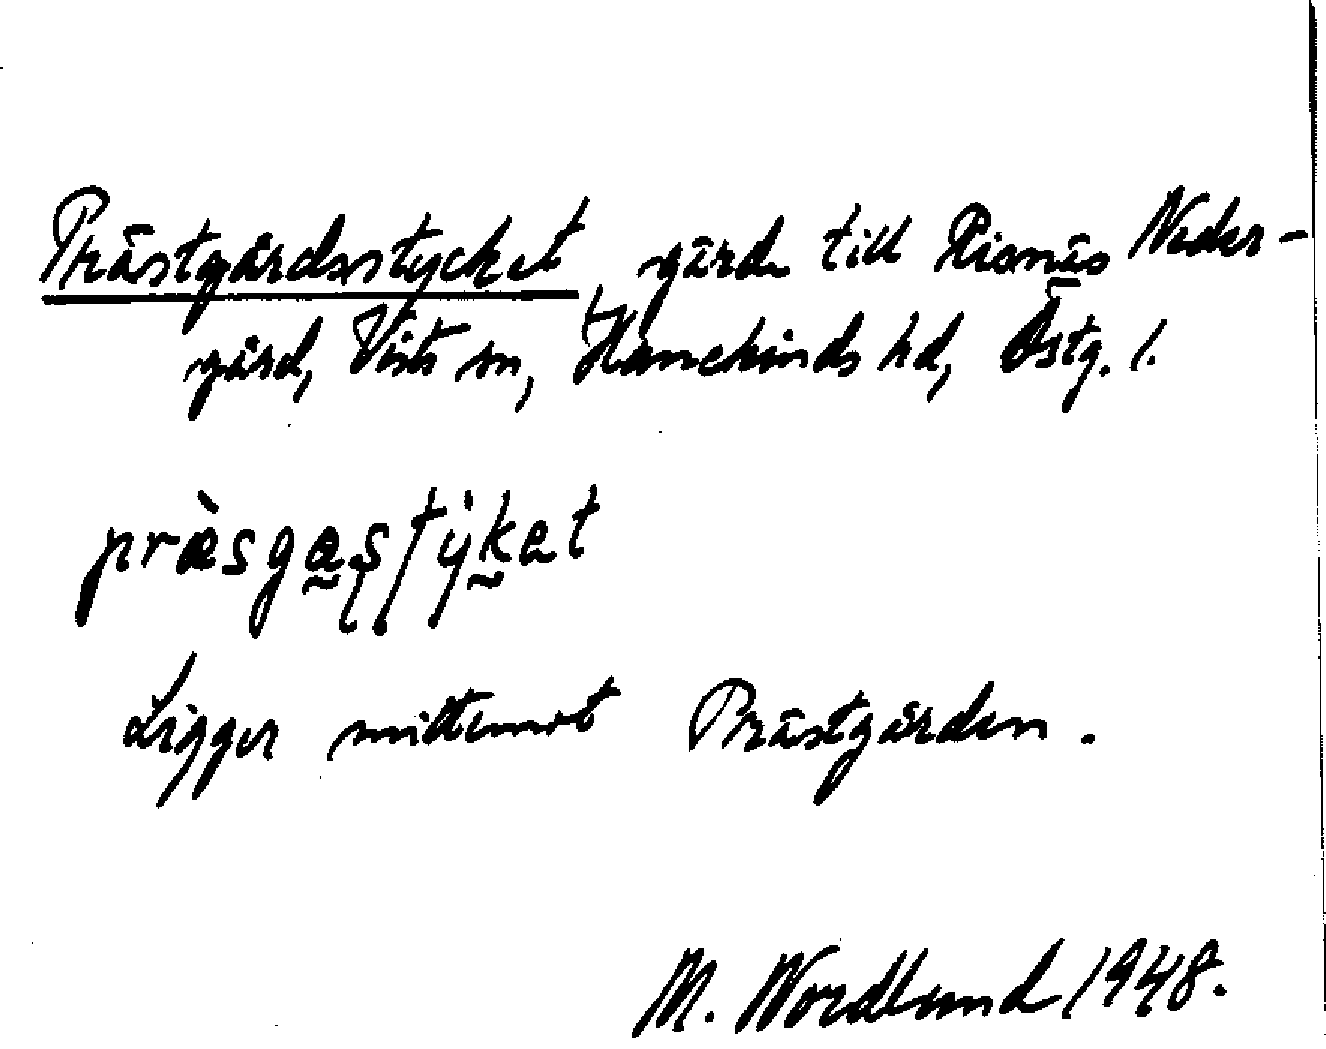 Prästgårdsstycket, gärde till Risnäs Neder-
gård, Vists sn, Hanekinds hd, Östg. l.
præ̀sgaʂʃtẏket
Ligger mittemot Prästgården.
M. Nordlund 1948.